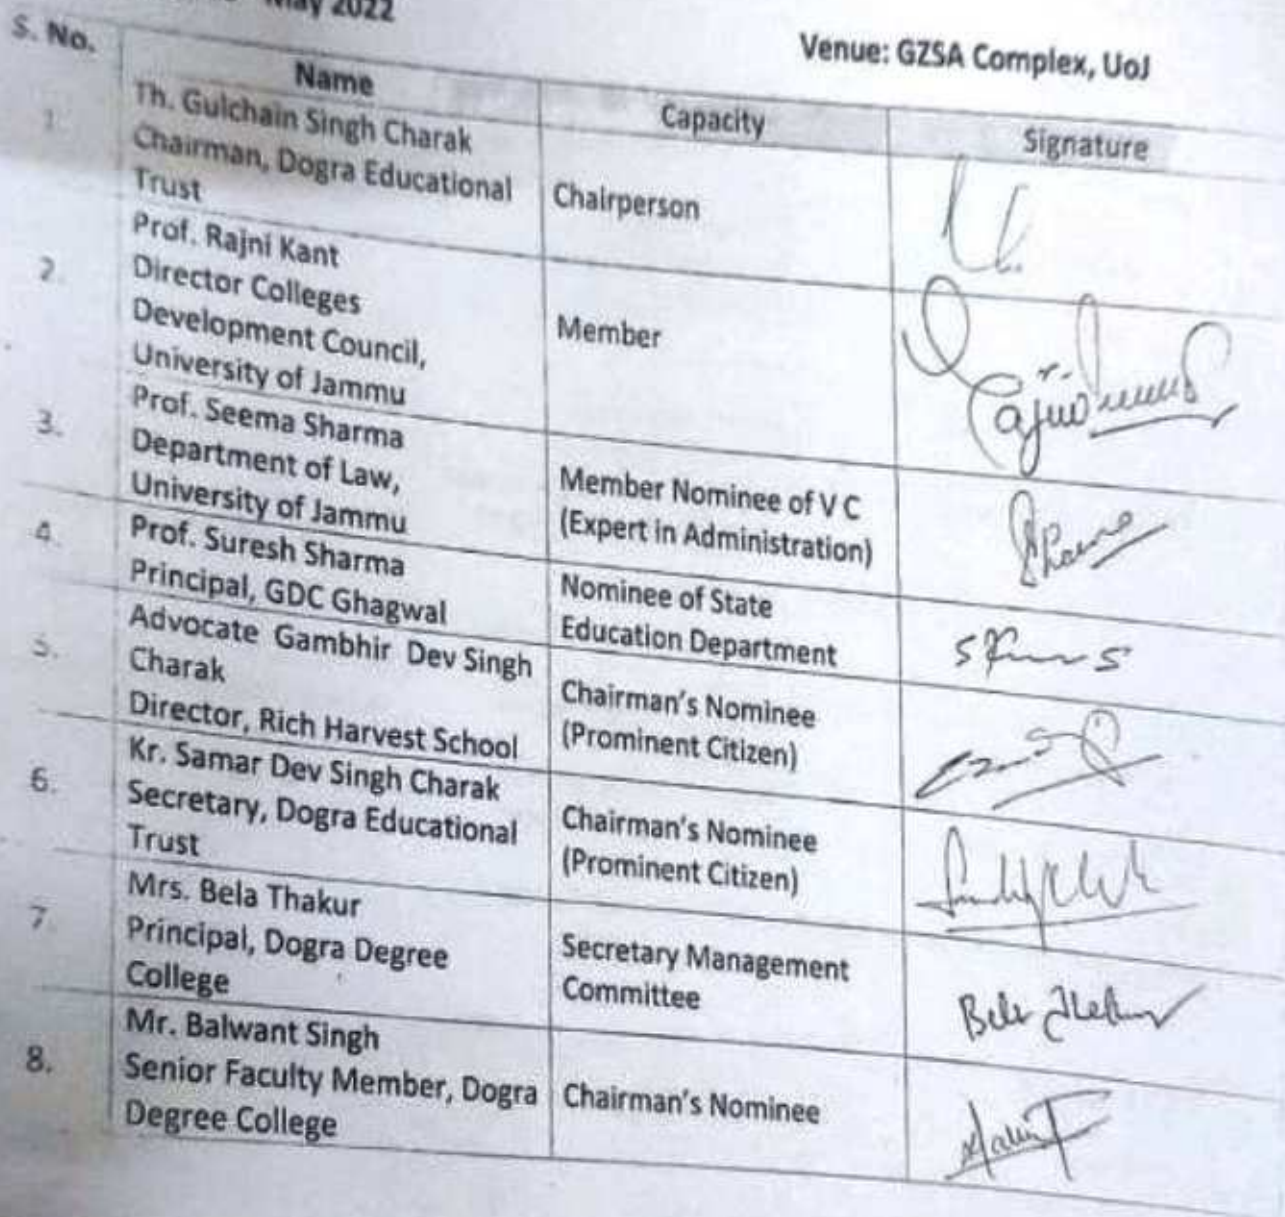 May 2022
Venue: GZSA Complex, UoJ
S. No.
Name
Capacity
Signature
1.
Th. Gulchain Singh Charak
Chairman, Dogra Educational
Trust
Chairperson
2.
Prof. Rajni Kant
Director Colleges
Development Council,
University of Jammu
Member
3.
Prof. Seema Sharma
Department of Law,
University of Jammu
Member Nominee of V C
(Expert in Administration)
4.
Prof. Suresh Sharma
Principal, GDC Ghagwal
Nominee of State
Education Department
5.
Advocate Gambhir Dev Singh
Charak
Director, Rich Harvest School
Chairman's Nominee
(Prominent Citizen)
6.
Kr. Samar Dev Singh Charak
Secretary, Dogra Educational
Trust
Chairman's Nominee
(Prominent Citizen)
7.
Mrs. Bela Thakur
Principal, Dogra Degree
College
Secretary Management
Committee
8.
Mr. Balwant Singh
Senior Faculty Member, Dogra
Degree College
Chairman's Nominee